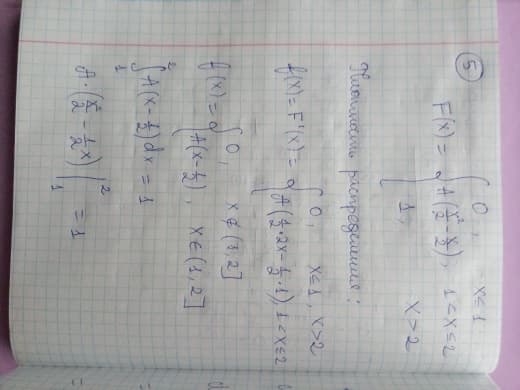 ⑤
0, x ≤ 1
F(x) = { A(x²/2 - x/2), 1 < x ≤ 2
1, x > 2
Плотность распределения:
f(x) = F'(x) = { 0, x ≤ 1, x > 2
A(1/2·2x - 1/2·1), 1 < x ≤ 2
f(x) = { 0, x ∉ (1, 2]
A(x - 1/2), x ∈ (1, 2]
∫₁² A(x - 1/2)dx = 1
A·(x²/2 - 1/2 x)|₁² = 1